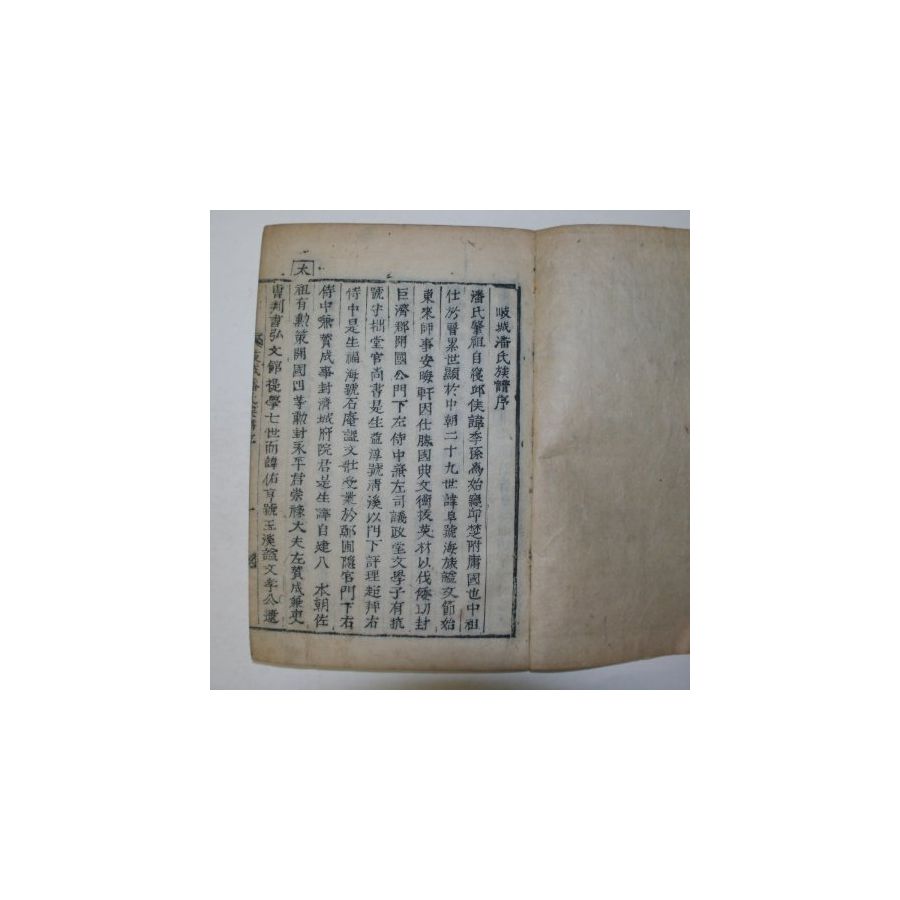 岐城潘氏族譜序
潘氏肇祖自寢邱侯諱季孫爲始寢邱楚附庸國也中祖
仕於晉累世顯於中朝二十九世諱阜號海族諡文節始
東來師事安晦軒因仕勝國典文衡拔英材以伐倭功封
巨濟郡開國公門下左侍中兼左司議政堂文學子有抗
號守拙堂官尚書是生益淳號淸溪以門下評理超拜右
侍中是生福海號石庵諡文壯受業於鄭圃隱官門下右
侍中兼贊成事封濟城府院君是生諱自建入 本朝佐
太
祖有勳策開國四等勳封永平君崇祿大夫左贊成兼吏
曹判書弘文館提學七世而諱佑亨號玉溪諡文孝公還